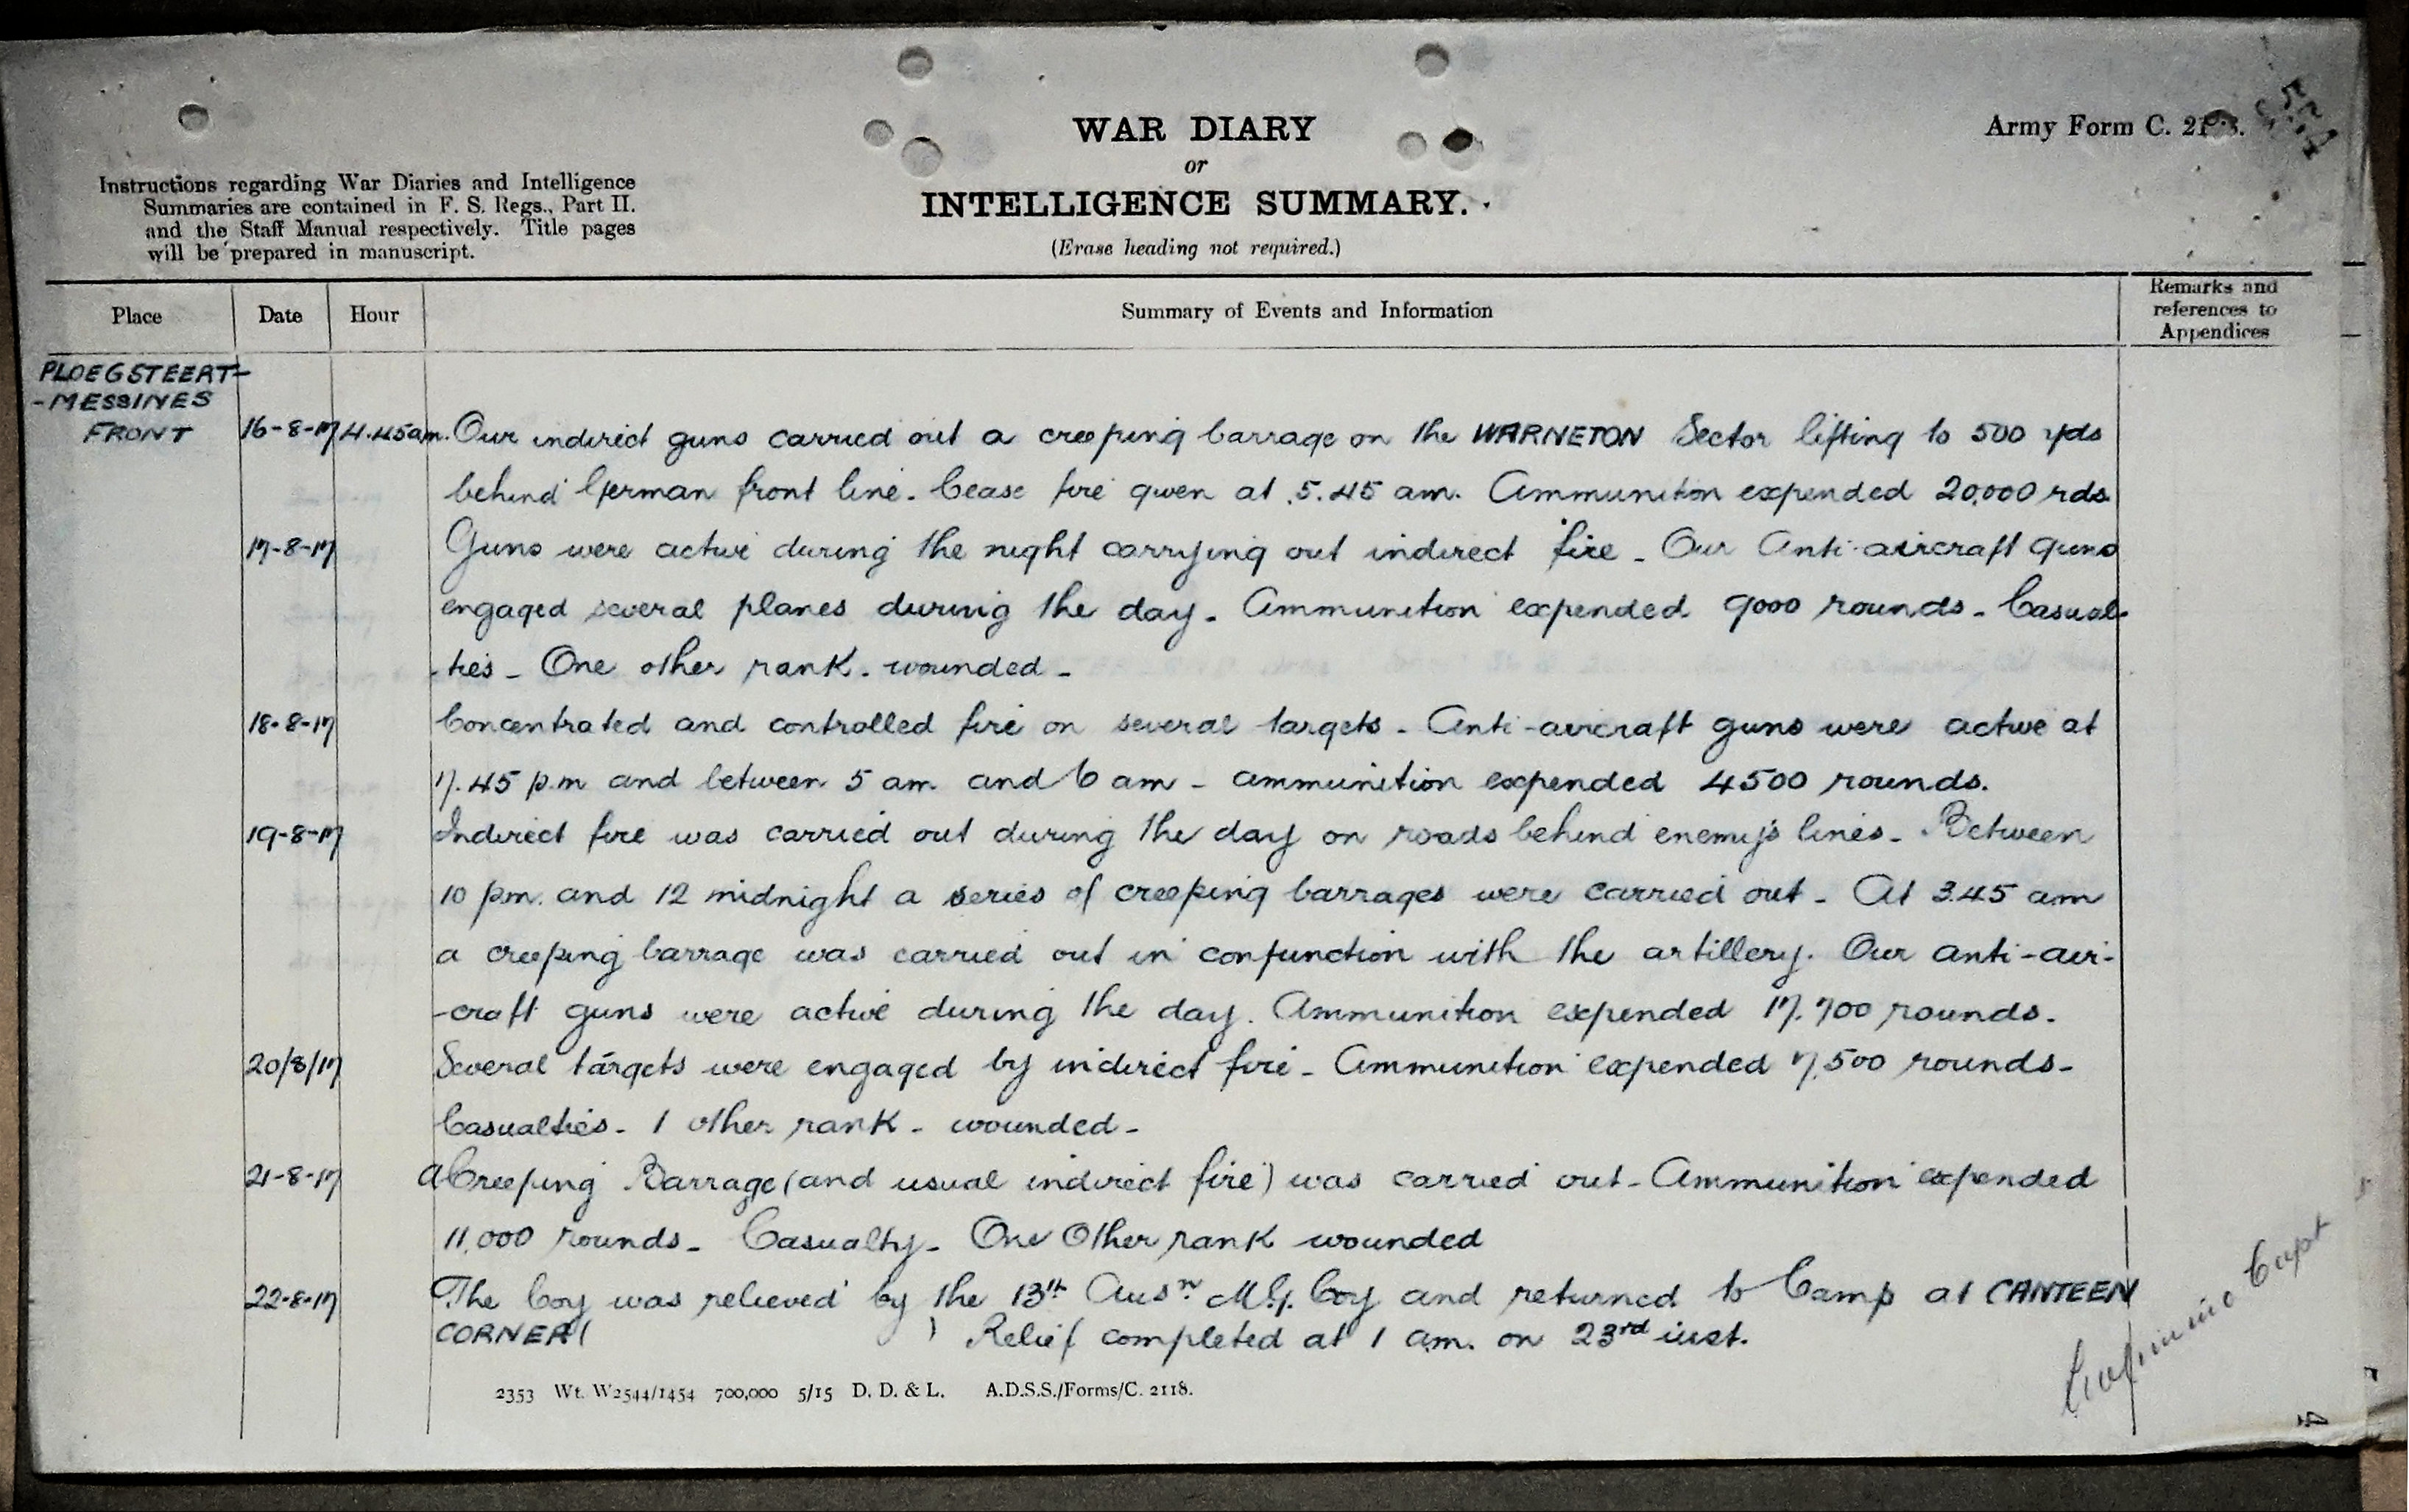 WAR DIARY
or
INTELLIGENCE SUMMARY.
(Erase heading not required.)
Army Form C.
Instructions regarding War Diaries and Intelligence
Summaries are contained in F. S. Regs., Part II.
and the Staff Manual respectively. Title pages
will be prepared in manuscript.
Place Date Hour Summary of Events and Information Remarks and
references to
Appendices
PLOEGSTEERT-
-MESSINES
FRONT 16-8-17 4.45am. Our indirect guns carried out a creeping barrage on the WARNETON Sector lifting to 500 yds
behind German front line. Cease fire given at 5.45 am. Ammunition expended 20,000 rds
17-8-17 Guns were active during the night carrying out indirect fire - Our Anti-aircraft guns
engaged several planes during the day. Ammunition expended 9000 rounds - Casual-
-ties - One other rank. wounded -
18-8-17 Concentrated and controlled fire on several targets - Anti-aircraft guns were active at
7.45 p.m and between 5 am and 6 am - ammunition expended 4500 rounds.
19-8-17 Indirect fire was carried out during the day on roads behind enemy's lines - Between
10 p.m. and 12 midnight a series of creeping barrages were carried out - At 3.45 am
a creeping barrage was carried out in conjunction with the artillery. Our anti-air-
-craft guns were active during the day. Ammunition expended 17,700 rounds.
20/8/17 Several targets were engaged by indirect fire - Ammunition expended 7,500 rounds -
Casualties - 1 other rank - wounded -
21-8-17 A Creeping Barrage (and usual indirect fire) was carried out - Ammunition expended
11,000 rounds - Casualty - One Other rank wounded
22-8-17 The Coy was relieved by the 13th Ausn M.G. Coy and returned to Camp at CANTEEN
CORNER ( ) Relief completed at 1 am. on 23rd inst.
Capt
2353 Wt. W2544/1454 700,000 5/15 D. D. & L. A.D.S.S./Forms/C. 2118.
4